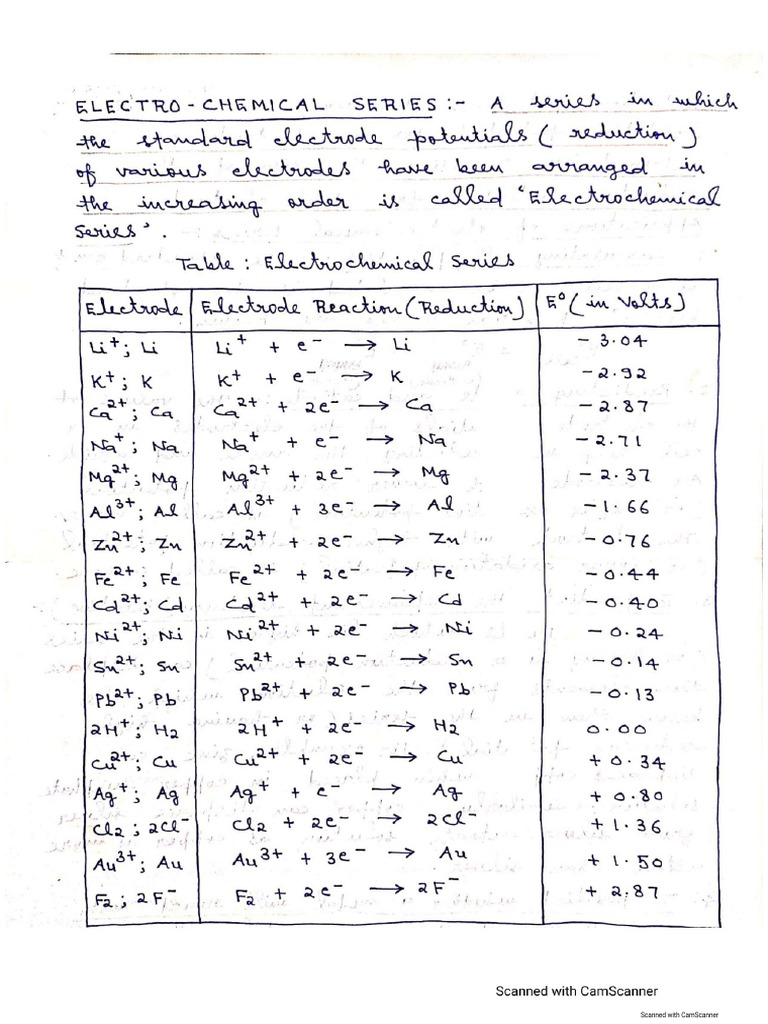 ELECTRO-CHEMICAL SERIES :- A series in which
the standard electrode potentials (reduction)
of various electrodes have been arranged in
the increasing order is called 'Electrochemical
Series'.
Table : Electrochemical Series
Electrode Electrode Reaction (Reduction) E⁰ (in Volts)
Li⁺; Li Li⁺ + e⁻ → Li - 3.04
K⁺; K K⁺ + e⁻ → K - 2.92
Ca²⁺; Ca Ca²⁺ + 2e⁻ → Ca - 2.87
Na⁺; Na Na⁺ + e⁻ → Na - 2.71
Mg²⁺; Mg Mg²⁺ + 2e⁻ → Mg - 2.37
Al³⁺; Al Al³⁺ + 3e⁻ → Al - 1.66
Zn²⁺; Zn Zn²⁺ + 2e⁻ → Zn - 0.76
Fe²⁺; Fe Fe²⁺ + 2e⁻ → Fe - 0.44
Cd²⁺; Cd Cd²⁺ + 2e⁻ → Cd - 0.40
Ni²⁺; Ni Ni²⁺ + 2e⁻ → Ni - 0.24
Sn²⁺; Sn Sn²⁺ + 2e⁻ → Sn - 0.14
Pb²⁺; Pb Pb²⁺ + 2e⁻ → Pb - 0.13
2H⁺; H₂ 2H⁺ + 2e⁻ → H₂ 0.00
Cu²⁺; Cu Cu²⁺ + 2e⁻ → Cu + 0.34
Ag⁺; Ag Ag⁺ + e⁻ → Ag + 0.80
Cl₂; 2Cl⁻ Cl₂ + 2e⁻ → 2Cl⁻ + 1.36
Au³⁺; Au Au³⁺ + 3e⁻ → Au + 1.50
F₂; 2F⁻ F₂ + 2e⁻ → 2F⁻ + 2.87
Scanned with CamScanner
Scanned with CamScanner